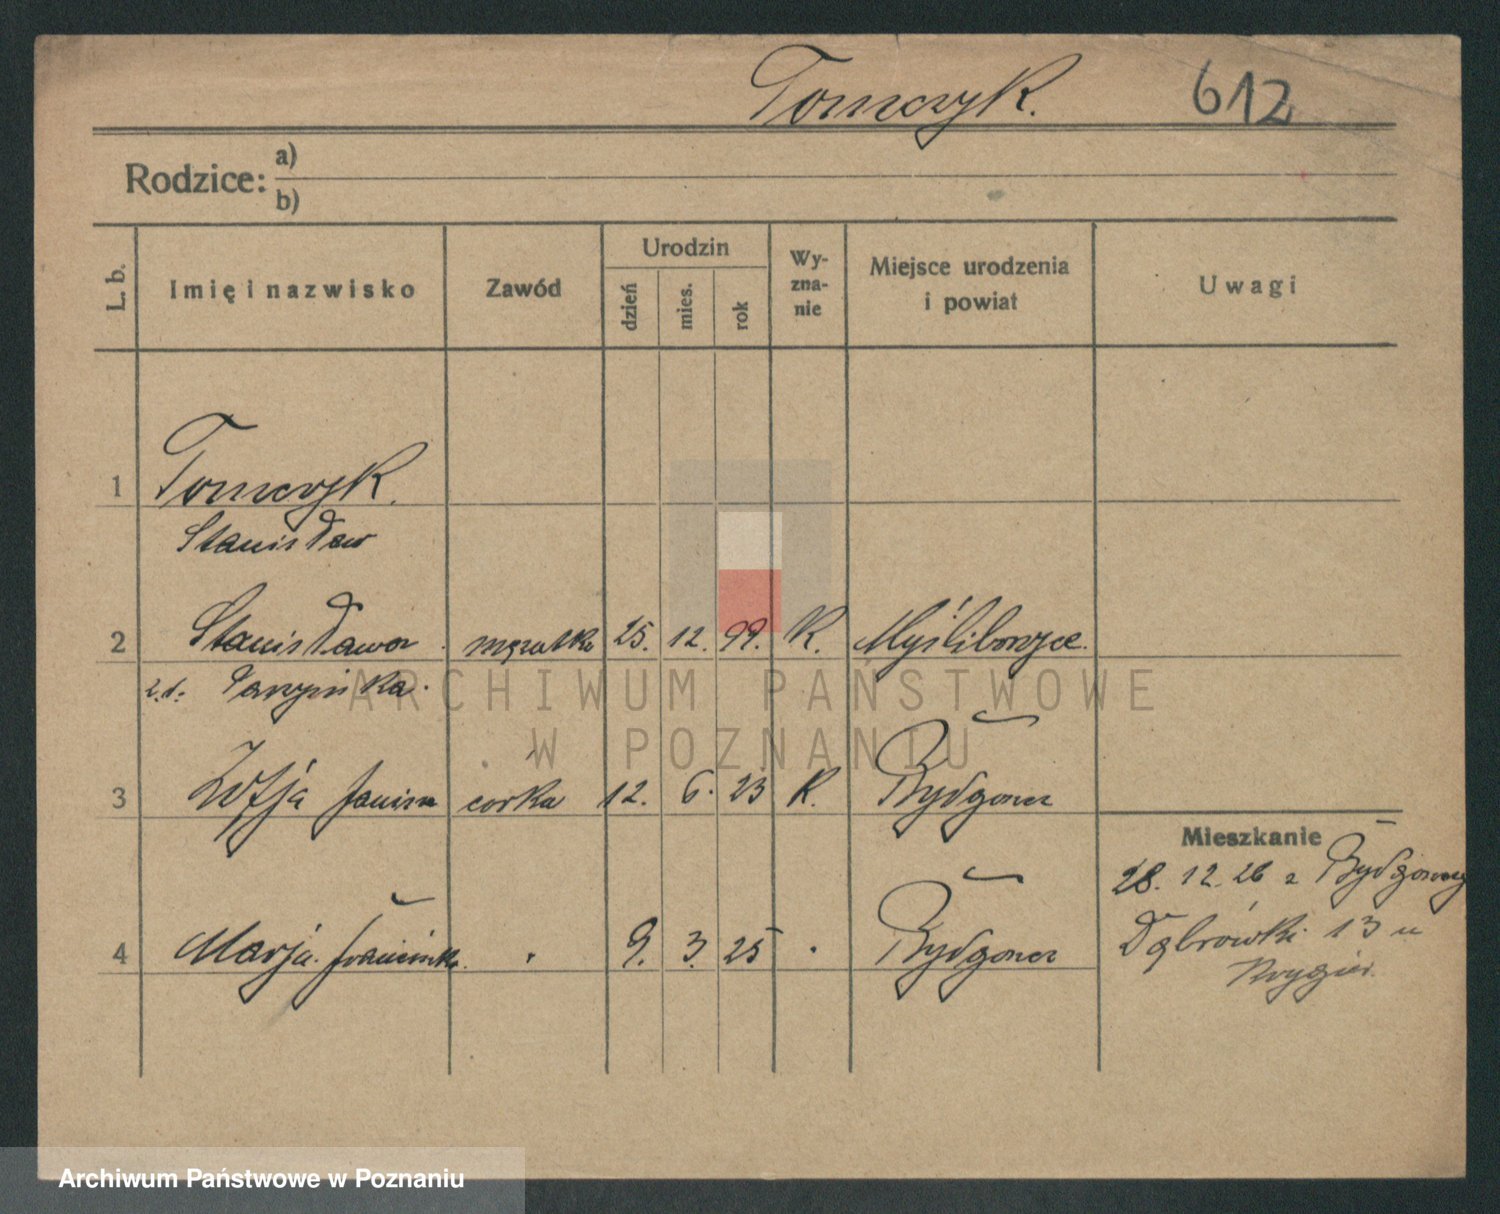 Tomczyk. 612
Rodzice: a)
b)
L. b. Imię i nazwisko Zawód Urodzin Wy-zna-nie Miejsce urodzenia i powiat Uwagi
dzień mies. rok
1 Tomczyk.
Stanisław
2 Stanisława mężatka 25. 12. 99. K. Myśliborzyce.
z.d.
ARCHIWUM PAŃSTWOWE
W POZNANIU
3 Zofja Janina córka 12. 6. 23 K. Bydgoszcz
Mieszkanie
28. 12. 26 z Bydgoszczy
4 Marja Franciszka " 9. 3. 25 " Bydgoszcz
Dąbrówki 13 u
Archiwum Państwowe w Poznaniu